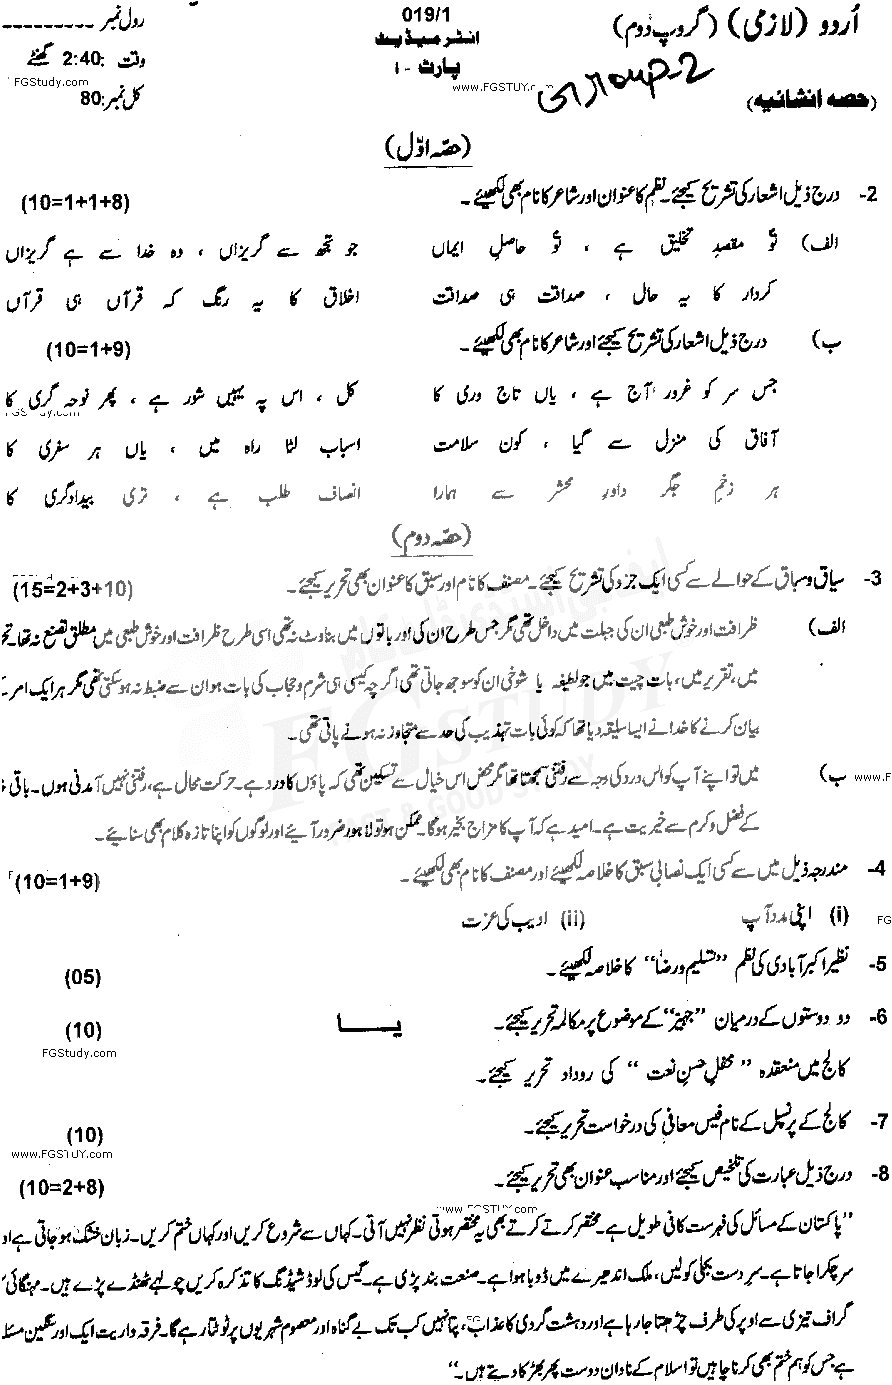 اُردو (لازمی) (گروپ دوم)
019/1
انٹرمیڈیٹ
پارٹ - I
رول نمبر ---------
وقت :2:40 گھنٹے
FGStudy.com
کل نمبر :80
www.FGSTUY.com
Group-2
(حصہ انشائیہ)
(حصّہ اوّل)
2- درج ذیل اشعار کی تشریح کیجئے۔ نظم کا عنوان اور شاعر کا نام بھی لکھیئے۔ (10=1+1+8)
الف) تُو مقصدِ تخلیق ہے ، تُو حاصلِ ایماں جو تجھ سے گریزاں ، وہ خدا سے ہے گریزاں
کردار کا یہ حال ، صداقت ہی صداقت اخلاق کا یہ رنگ کہ قرآں ہی قرآں
ب) درج ذیل اشعار کی تشریح کیجئے اور شاعر کا نام بھی لکھیئے۔ (10=1+9)
جس سر کو غرور آج ہے ، یاں تاج وری کا کل ، اس پہ یہیں شور ہے ، پھر نوحہ گری کا
FGStudy.com
آفاق کی منزل سے گیا ، کون سلامت اسباب لٹا راہ میں ، یاں ہر سفری کا
ہر زخمِ جگر داورِ محشر سے ہمارا انصاف طلب ہے ، تری بیدادگری کا
(حصّہ دوم)
3- سیاق و سباق کے حوالے سے کسی ایک جزو کی تشریح کیجئے۔ مصنف کا نام اور سبق کا عنوان بھی تحریر کیجئے۔ (15=2+3+10)
الف) ظرافت اور خوش طبعی ان کی جبلت میں داخل تھی مگر جس طرح ان کی اور باتوں میں بناوٹ نہ تھی اسی طرح ظرافت اور خوش طبعی میں مطلق تصنع نہ تھا۔
میں، تقریر میں، بات چیت میں جو لطیفہ یا شوخی ان کو سوجھ جاتی تھی اگرچہ کیسی ہی شرم و حجاب کی بات ہو ان سے ضبط نہ ہو سکتی تھی مگر ہر ایک امر
بیان کرنے کا خدا نے ایسا سلیقہ دیا تھا کہ کوئی بات تہذیب کی حد سے متجاوز نہ ہونے پاتی تھی۔
ب) میں تو اپنے آپ کو اس درد کی وجہ سے رفتنی سمجھتا تھا مگر محض اس خیال سے تسکین تھی کہ پاؤں کا درد ہے۔ حرکت محال ہے، رفتنی نہیں آمدنی ہوں۔ باقی
www.F
کے فضل و کرم سے خیریت ہے۔ امید ہے کہ آپ کا مزاج بخیر ہوگا۔ ممکن ہو تو لاہور ضرور آیئے اور لوگوں کو اپنا تازہ کلام بھی سنایئے۔
4- مندرجہ ذیل میں سے کسی ایک نصابی سبق کا خلاصہ لکھیئے اور مصنف کا نام بھی لکھیئے۔ (10=1+9)
(i) اپنی مدد آپ (ii) ادیب کی عزت
FG
5- نظیر اکبر آبادی کی نظم "تسلیم و رضا" کا خلاصہ لکھیئے۔ (05)
6- دو دوستوں کے درمیان "جہیز" کے موضوع پر مکالمہ تحریر کیجئے۔ یا (10)
FGStudy.com
کالج میں منعقدہ "محفلِ حسنِ نعت" کی روداد تحریر کیجئے۔
7- کالج کے پرنسپل کے نام فیس معافی کی درخواست تحریر کیجئے۔ (10)
www.FGSTUY.com
8- درج ذیل عبارت کی تلخیص کیجئے اور مناسب عنوان بھی تحریر کیجئے۔ (10=2+8)
www.FGSTUY.com
"پاکستان کے مسائل کی فہرست کافی طویل ہے۔ مختصر کرتے کرتے بھی یہ مختصر ہوتی نظر نہیں آتی۔ کہاں سے شروع کریں اور کہاں ختم کریں۔ زبان خشک ہو جاتی ہے
سر چکرا جاتا ہے۔ سر دست بجلی کو لیں، ملک اندھیرے میں ڈوبا ہوا ہے۔ صنعت بند پڑی ہے۔ گیس کی لوڈ شیڈنگ کا تذکرہ کریں چولہے ٹھنڈے پڑے ہیں۔ مہنگائی
گراف تیزی سے اوپر کی طرف چڑھتا جا رہا ہے اور دہشت گردی کا عذاب، پتا نہیں کب تک بے گناہ اور معصوم شہریوں پر ٹوٹتا رہے گا۔ فرقہ واریت ایک اور سنگین
ہے جس کو ہم ختم بھی کرنا چاہیں تو اسلام کے نادان دوست پھر بھڑکا دیتے ہیں۔"